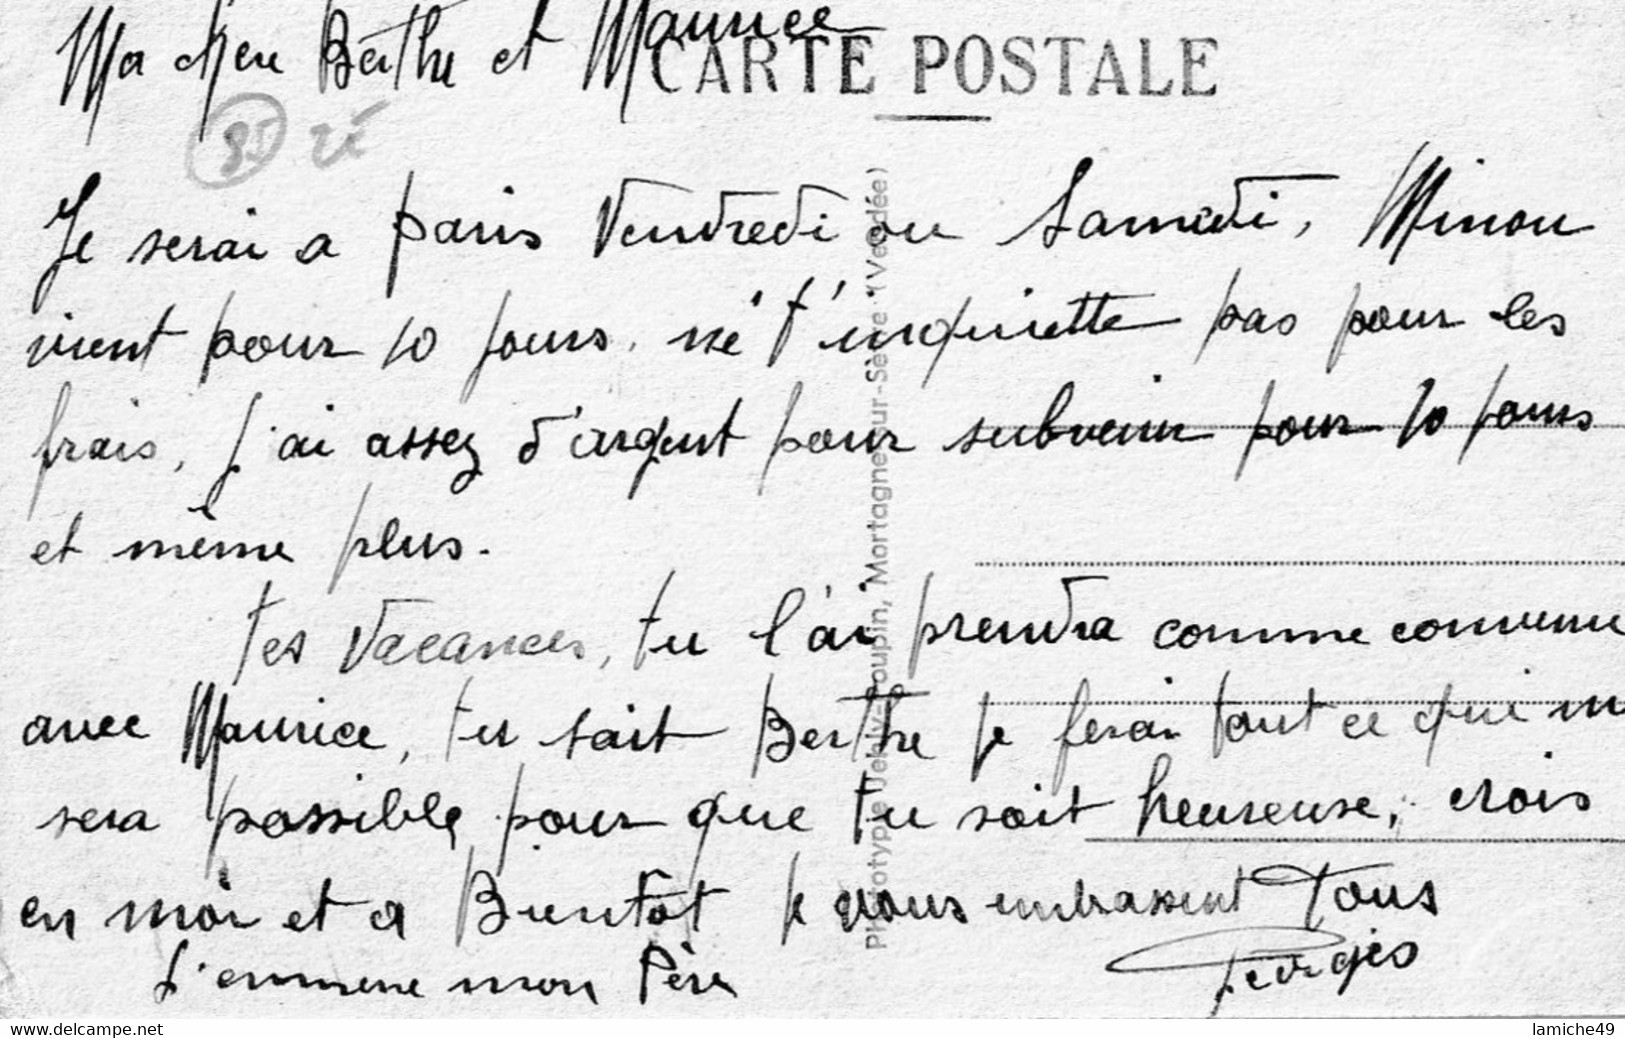 Ma chere Berthe et Maurice
CARTE POSTALE
Je serai a paris Vendredi ou Samedi, Minou
vient pour 10 jours. ne t'inquiette pas pour les
frais, j'ai assez d'argent pour subvenir pour 10 jours
et même plus.
tes Vacances, tu l'ai prendra comme convenu
avec Maurice, tu sait Berthe je ferai tout ce qui m
sera possible pour que tu soit heureuse, crois
en moi et a Bientôt je vous embrassent Tous
J'emmene mon Père
Georges
Phototypie Jehly-Poupin, Mortagne-sur-Sèvre (Vendée)
www.delcampe.net
lamiche49